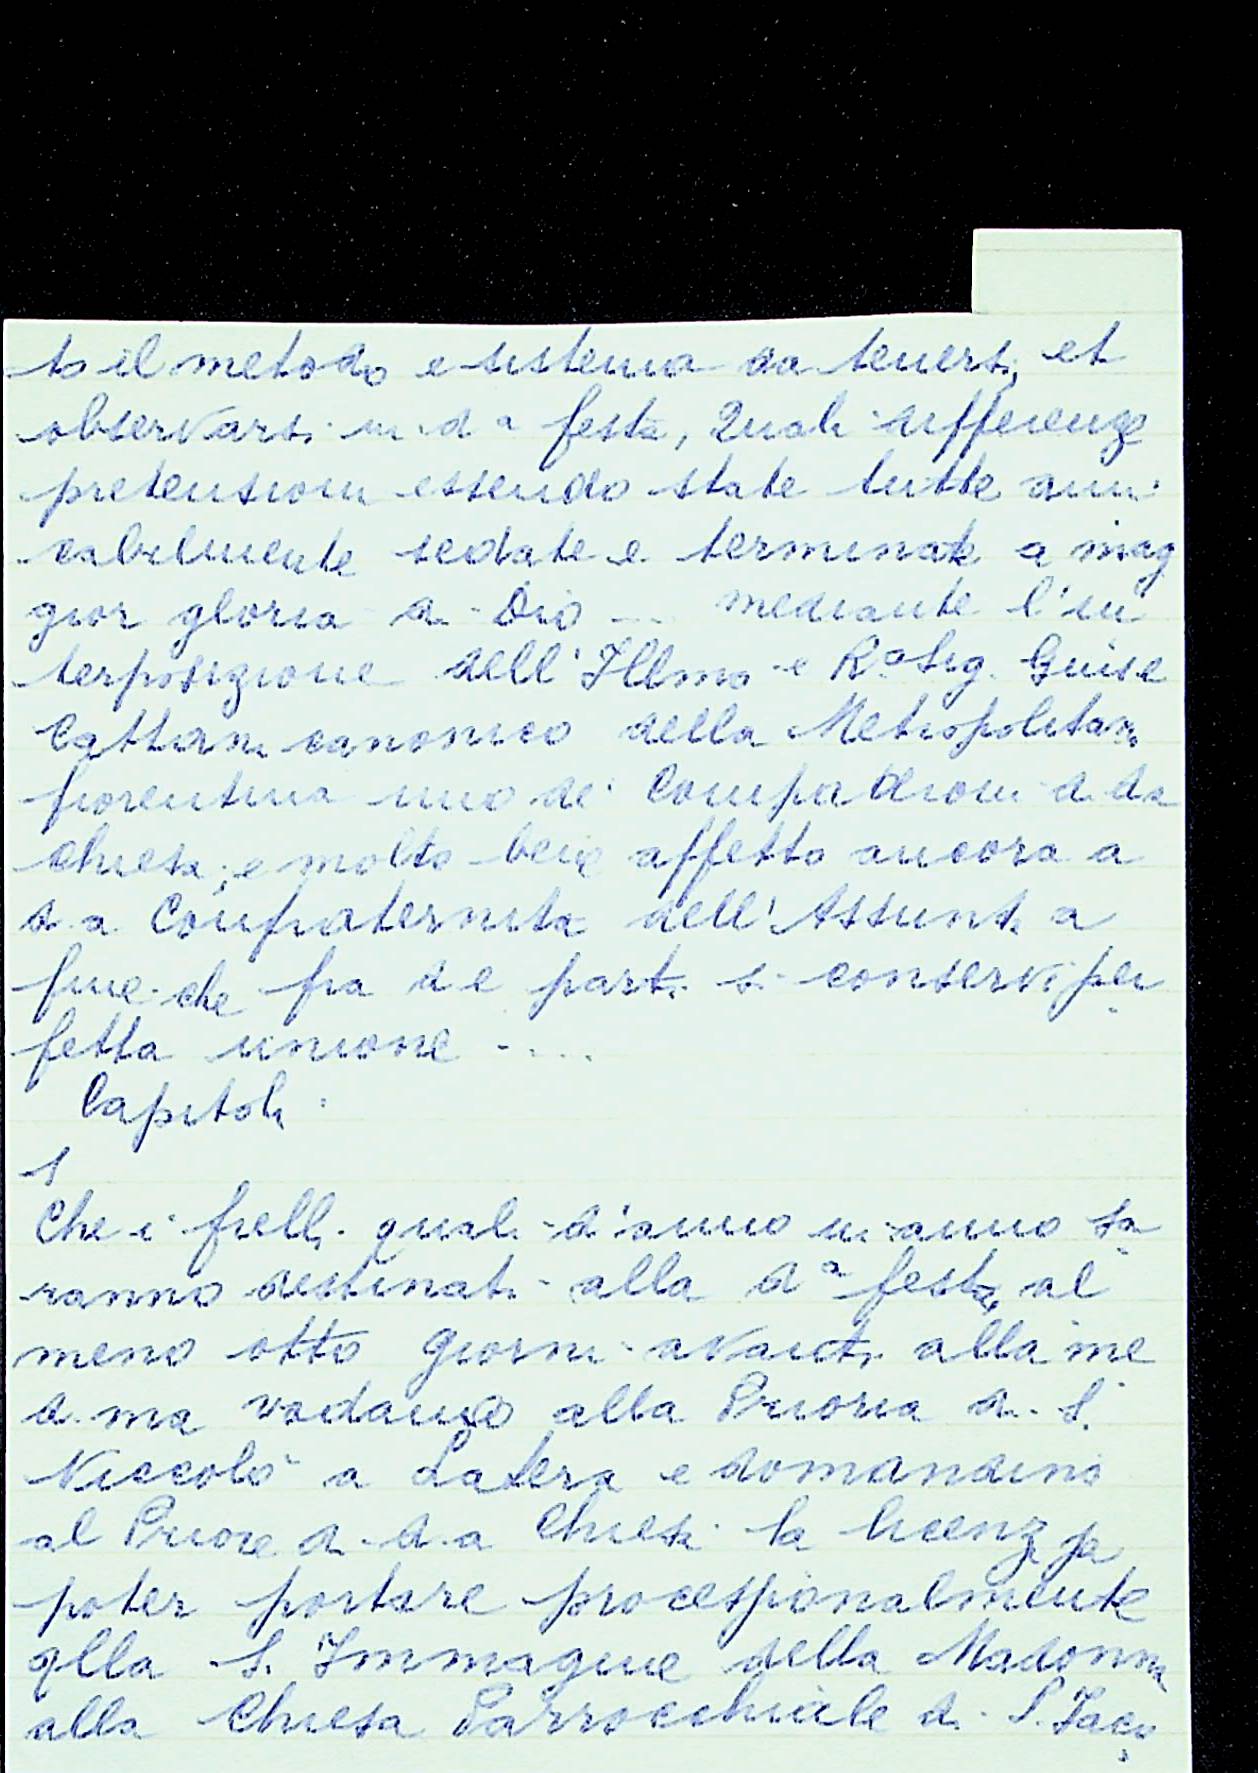 to il metodo e sistema da tenersi, et
observarsi in d a festa, Quali differenze
pretensioni essendo state tutte ami
cabilmente sedate e terminate a mag
gior gloria di Dio ... mediante l'in
terposizione dell'Illmo e R.o Sig. Guise
Cattani canonico della Metropolitana
fiorentina uno de' Compadroni di da
Chiesa; e molto bene affetto ancora a
d. a Confraternita dell'Assunta a
fine che fra d e parti si conservi per
fetta unione ....
Capitoli:
1
Che i frelli quali d'anno in anno sa
ranno destinati alla d a festa, al
meno otto giorni avanti alla me
d. ma vadano alla Prioria di S.
Niccolò a Latera e domandino
al Priore di d. a Chiesa la licenza
poter portare processionalmente
qlla S. Immagine della Madonna
alla Chiesa Parrocchiale di S. Jaco